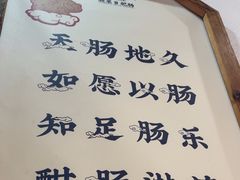 天肠地久
如愿以肠
知足肠乐
酣肠淋